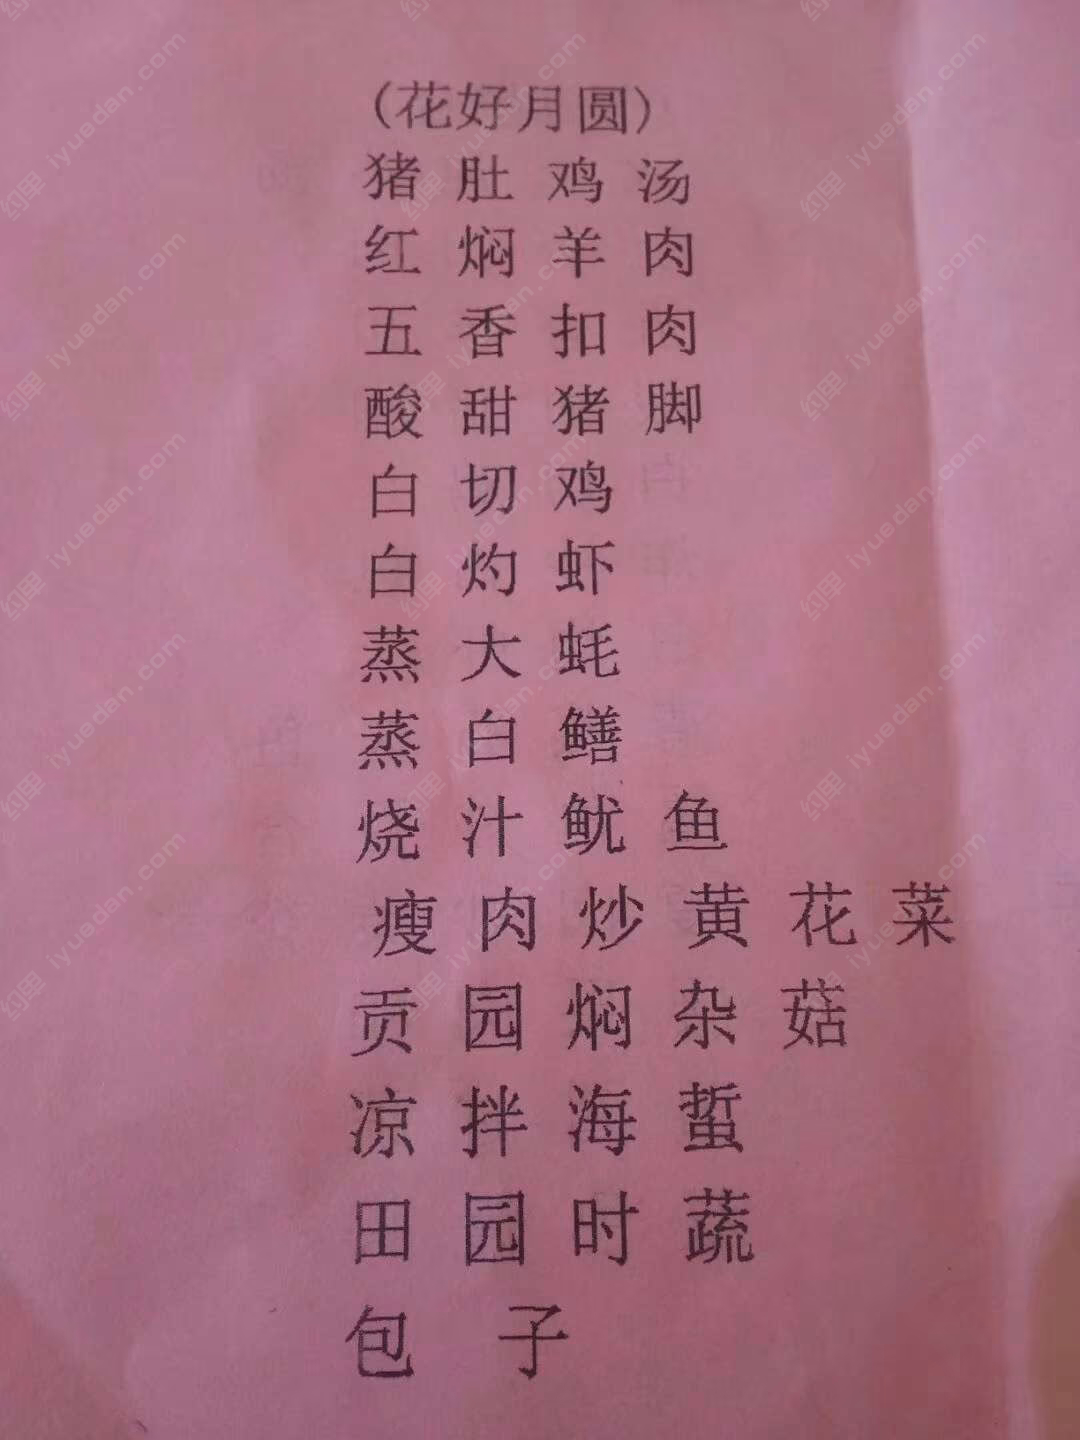 (花好月圆)
猪肚鸡汤
红焖羊肉
五香扣肉
酸甜猪脚
白切鸡
白灼虾
蒸大蚝
蒸白鳝
烧汁鱿鱼
瘦肉炒黄花菜
贡园焖杂菇
凉拌海蜇
田园时蔬
包子
约单 iyuedan.com